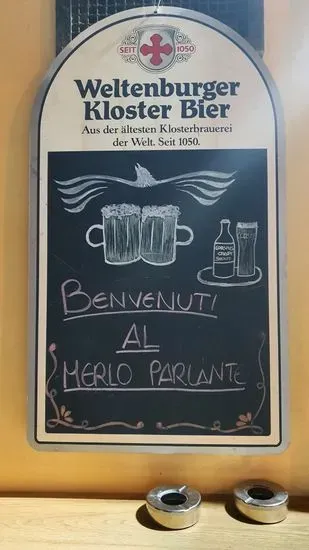 SEIT 1050
Weltenburger
Kloster Bier
Aus der ältesten Klosterbrauerei
der Welt. Seit 1050.
BENVENUTI
AL
MERLO PARLANTE